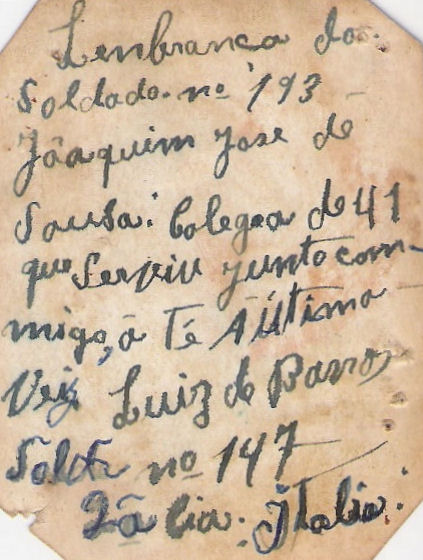 Lenbranca do
Soldado. nº 193
Joaquim Jose de
Sousa. Colegea de 41
que Serviu junto com-
migo, a Té A Ultima
Veiz Luiz de Barros
Soldº nº 147
2ª Cia. Italia.